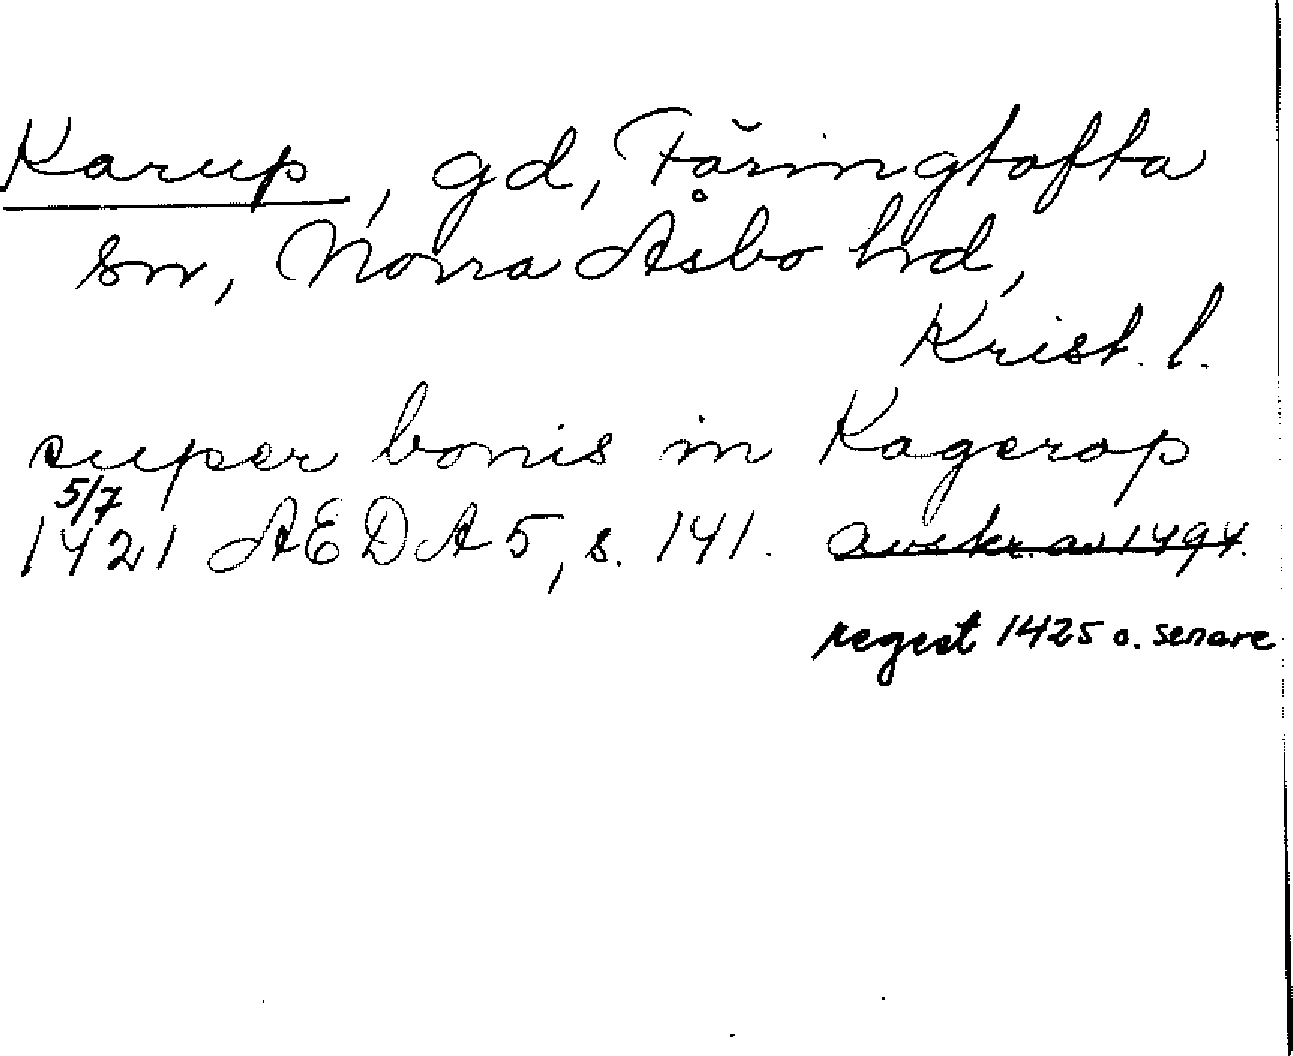 Karup, gd, Färingtofta
sn, Norra Åsbo hrd,
Krist. l.
super bonis in Kagerop
5/7
1421 AEDA 5, s. 141. avskr. av 1494.
regest 1425 o. senare